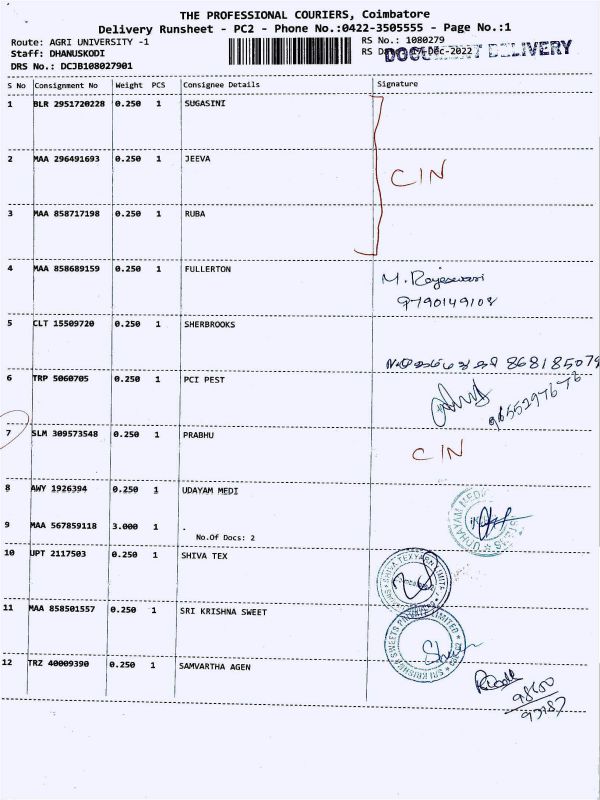 THE PROFESSIONAL COURIERS, Coimbatore
Delivery Runsheet - PC2 - Phone No.:0422-3505555 - Page No.:1
Route: AGRI UNIVERSITY -1 RS No.: 1080279
Staff: DHANUSKODI RS Dec-2022 DOCUMENT DELIVERY
DRS No.: DCJB108027901
S No Consignment No Weight PCS Consignee Details Signature
1 BLR 2951720228 0.250 1 SUGASINI
2 MAA 296491693 0.250 1 JEEVA CIN
3 MAA 858717198 0.250 1 RUBA
4 MAA 858689159 0.250 1 FULLERTON M. Rajeswari
9790149108
5 CLT 15509720 0.250 1 SHERBROOKS
868185079
6 TRP 5060705 0.250 1 PCI PEST
9655297676
7 SLM 309573548 0.250 1 PRABHU CIN
8 AWY 1926394 0.250 1 UDAYAM MEDI
9 MAA 567859118 3.000 1 .
No.Of Docs: 2
10 UPT 2117503 0.250 1 SHIVA TEX
SHIVA TEXYARN LIMITED
11 MAA 858501557 0.250 1 SRI KRISHNA SWEET
SRI KRISHNA SWEETS PRIVATE LIMITED
12 TRZ 40009390 0.250 1 SAMVARTHA AGEN